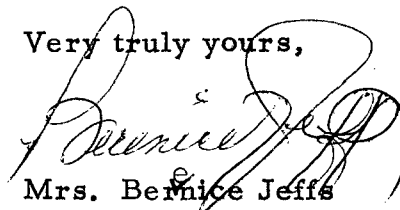 Very truly yours,
Berenice Jeffs
Mrs. Berenice Jeffs